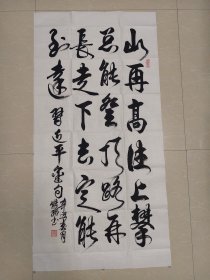 山再高往上攀
总能登顶路再
長走下去定能
到達習近平金句